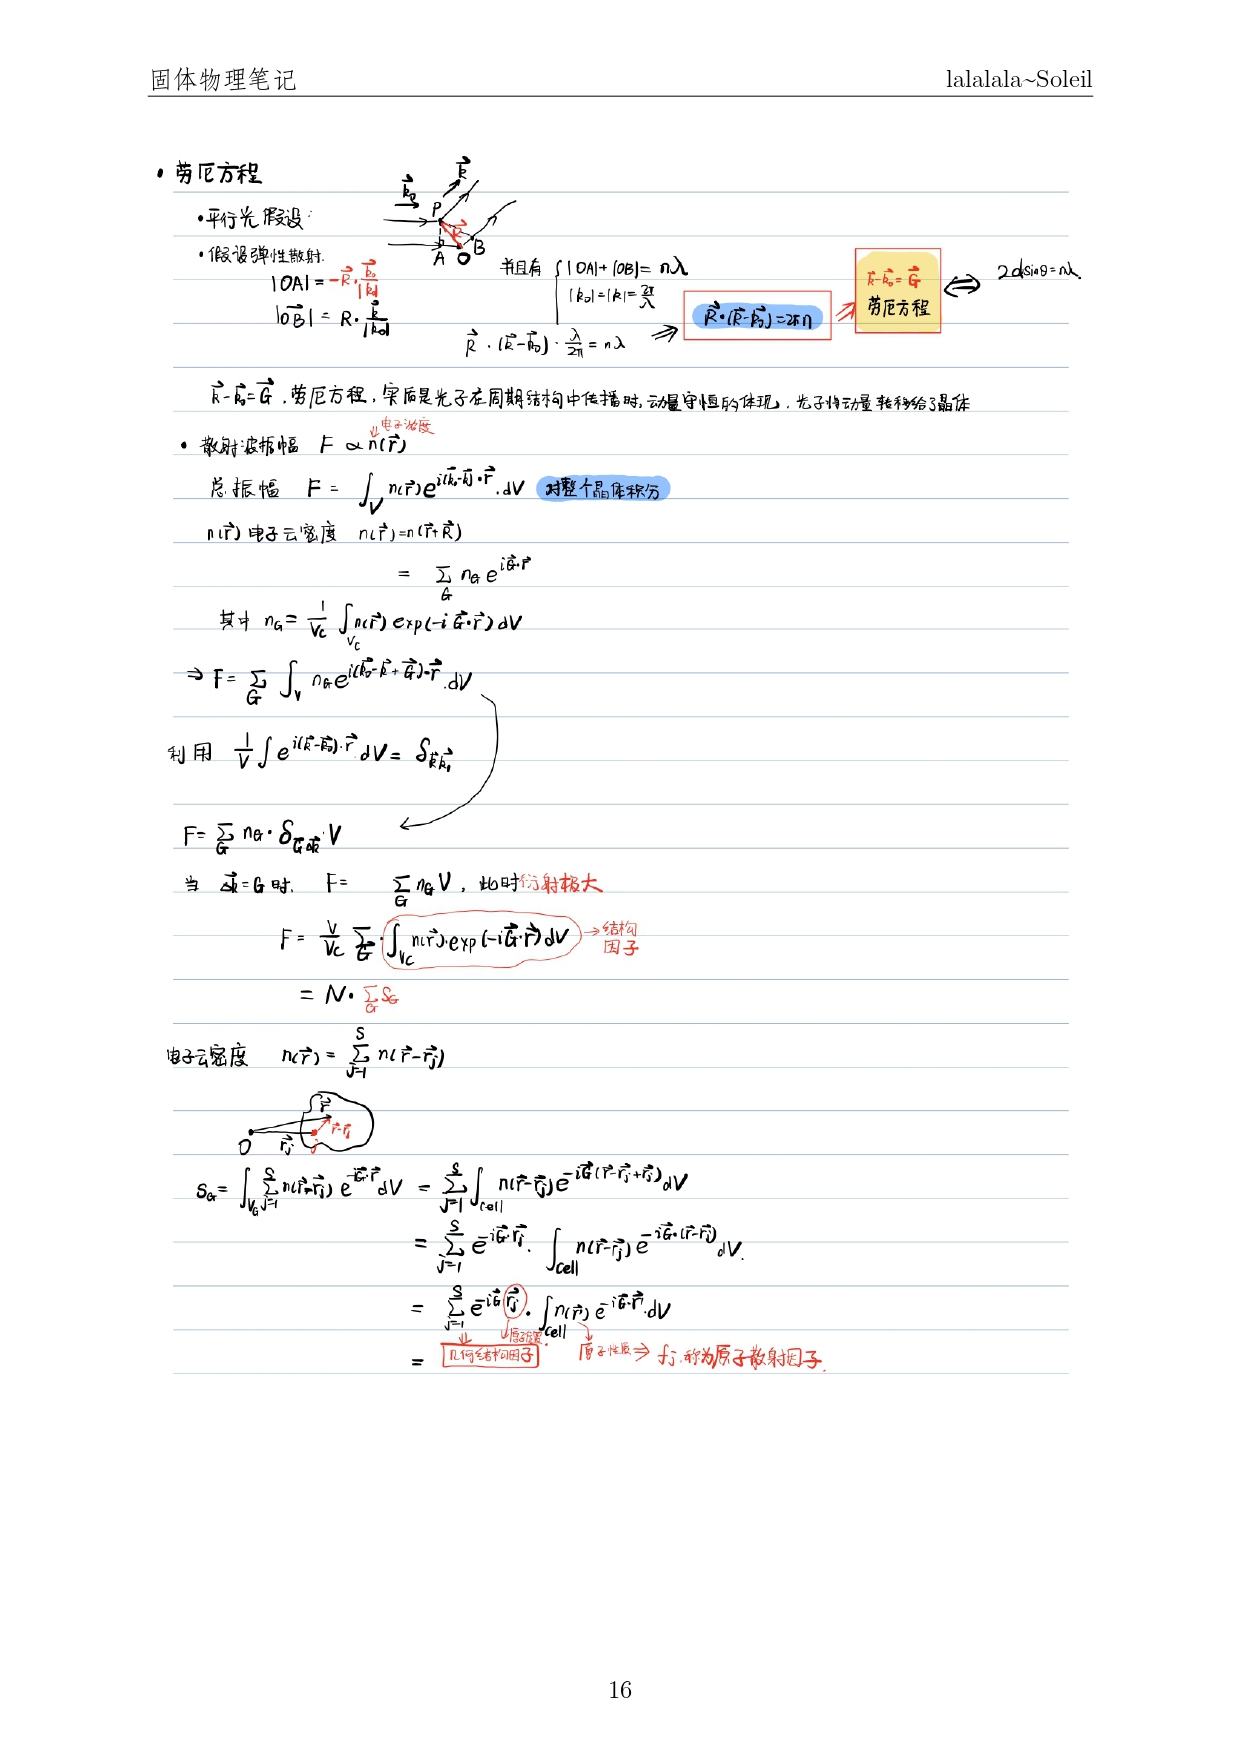 固体物理笔记 lalalala~Soleil
• 劳厄方程
•平行光假设:
•假设弹性散射.
k⃗₀ k⃗ P R⃗ A O B
|OA| = -R⃗·k⃗₀/|k₀|
|O⃗B| = R·k⃗/|k₀|
并且有 { |OA|+|OB| = nλ
|k₀|=|k|=2π/λ
R⃗·(k⃗-k⃗₀)·λ/2π = nλ ⇒ R⃗·(k⃗-k⃗₀)=2πn ⇒ k⃗-k⃗₀=G⃗ 劳厄方程 ⇔ 2dsinθ=nλ.
k⃗-k⃗₀=G⃗ .劳厄方程,实质是光子在周期结构中传播时,动量守恒的体现,光子将动量转移给了晶体
• 散射波振幅 F ∝ n(r⃗) 电子浓度
总振幅 F = ∫_V n(r⃗)e^{i(k⃗₀-k⃗)·r⃗}.dV 对整个晶体积分
n(r⃗) 电子云密度 n(r⃗)=n(r⃗+R⃗)
= Σ_G n_G e^{iG⃗·r⃗}
其中 n_G = 1/V_C ∫_{V_C} n(r⃗) exp(-iG⃗·r⃗)dV
⇒ F= Σ_G ∫_V n_G e^{i(k⃗₀-k⃗+G⃗)·r⃗}.dV
利用 1/V ∫ e^{i(k⃗-k⃗₀)·r⃗} dV = δ_{k⃗k⃗₀}
F= Σ_G n_G·δ_{G⃗Δk⃗}·V
当 Δk⃗=G时, F= Σ_G n_G V , 此时衍射极大
F= V/V_C Σ_G⃗ ·∫_{V_C} n(r⃗).exp(-iG⃗·r⃗)dV → 结构因子
= N·Σ_G S_G
电子云密度 n(r⃗) = Σ_{j=1}^{S} n(r⃗-r⃗j)
O r⃗ r⃗j r⃗-r⃗j j
S_G = ∫_{V_G} Σ_{j=1}^{S} n(r⃗-r⃗j) e^{-iG⃗·r⃗}dV = Σ_{j=1}^{S} ∫_{cell} n(r⃗-r⃗j)e^{-iG⃗(r⃗-r⃗j+r⃗j)}dV
= Σ_{j=1}^{S} e^{-iG⃗·r⃗j}. ∫_{cell} n(r⃗-r⃗j) e^{-iG⃗·(r⃗-r⃗j)}dV.
= Σ_{j=1}^{S} e^{-iG⃗r⃗j}. ∫_{cell} n(r⃗) e^{-iG⃗·r⃗}.dV
原子位置.
= 几何结构因子 原子性质 ⇒ fj.称为原子散射因子.
16